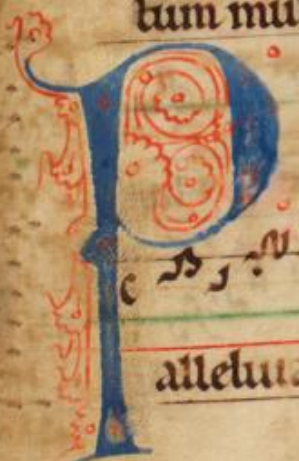 tum mu
P
alleluia